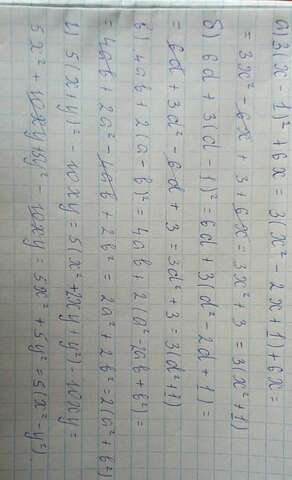 а) 3(x - 1)² + 6x = 3(x² - 2x + 1) + 6x =
= 3x² - 6x + 3 + 6x = 3x² + 3 = 3(x² + 1)
б) 6d + 3(d - 1)² = 6d + 3(d² - 2d + 1) =
= 6d + 3d² - 6d + 3 = 3d² + 3 = 3(d² + 1)
в) 4ab + 2(a - b)² = 4ab + 2(a² - 2ab + b²) =
= 4ab + 2a² - 4ab + 2b² = 2a² + 2b² = 2(a² + b²)
г) 5(x + y)² - 10xy = 5(x² + 2xy + y²) - 10xy =
5x² + 10xy + 5y² - 10xy = 5x² + 5y² = 5(x² - y²)